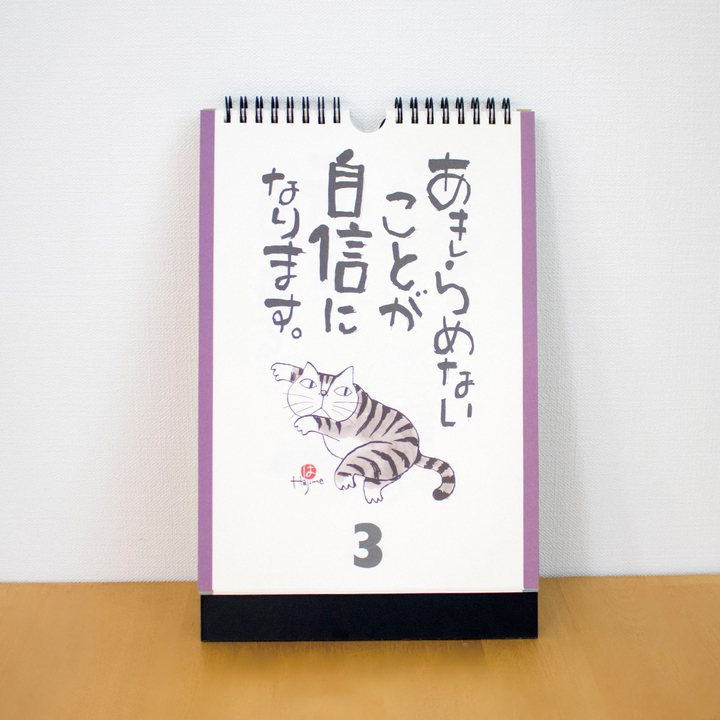 あきらめない
ことが
自信に
なります。
は
Hajime
3